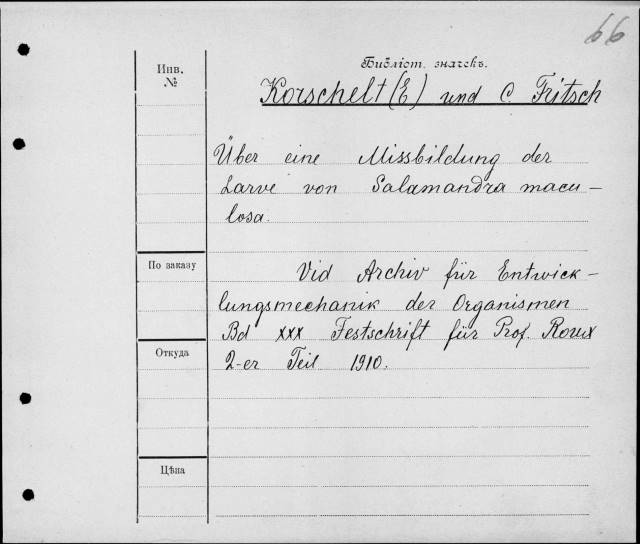 66
Библіот. значекъ.
Инв.
№
Korschelt (E) und C. Fritsch
Über eine Missbildung der
Larve von Salamandra macu-
losa.
По заказу
Vid Archiv für Entwick-
lungsmechanik der Organismen
Bd XXX Festschrift für Prof. Roux
Откуда
2-er Teil 1910.
Цѣна